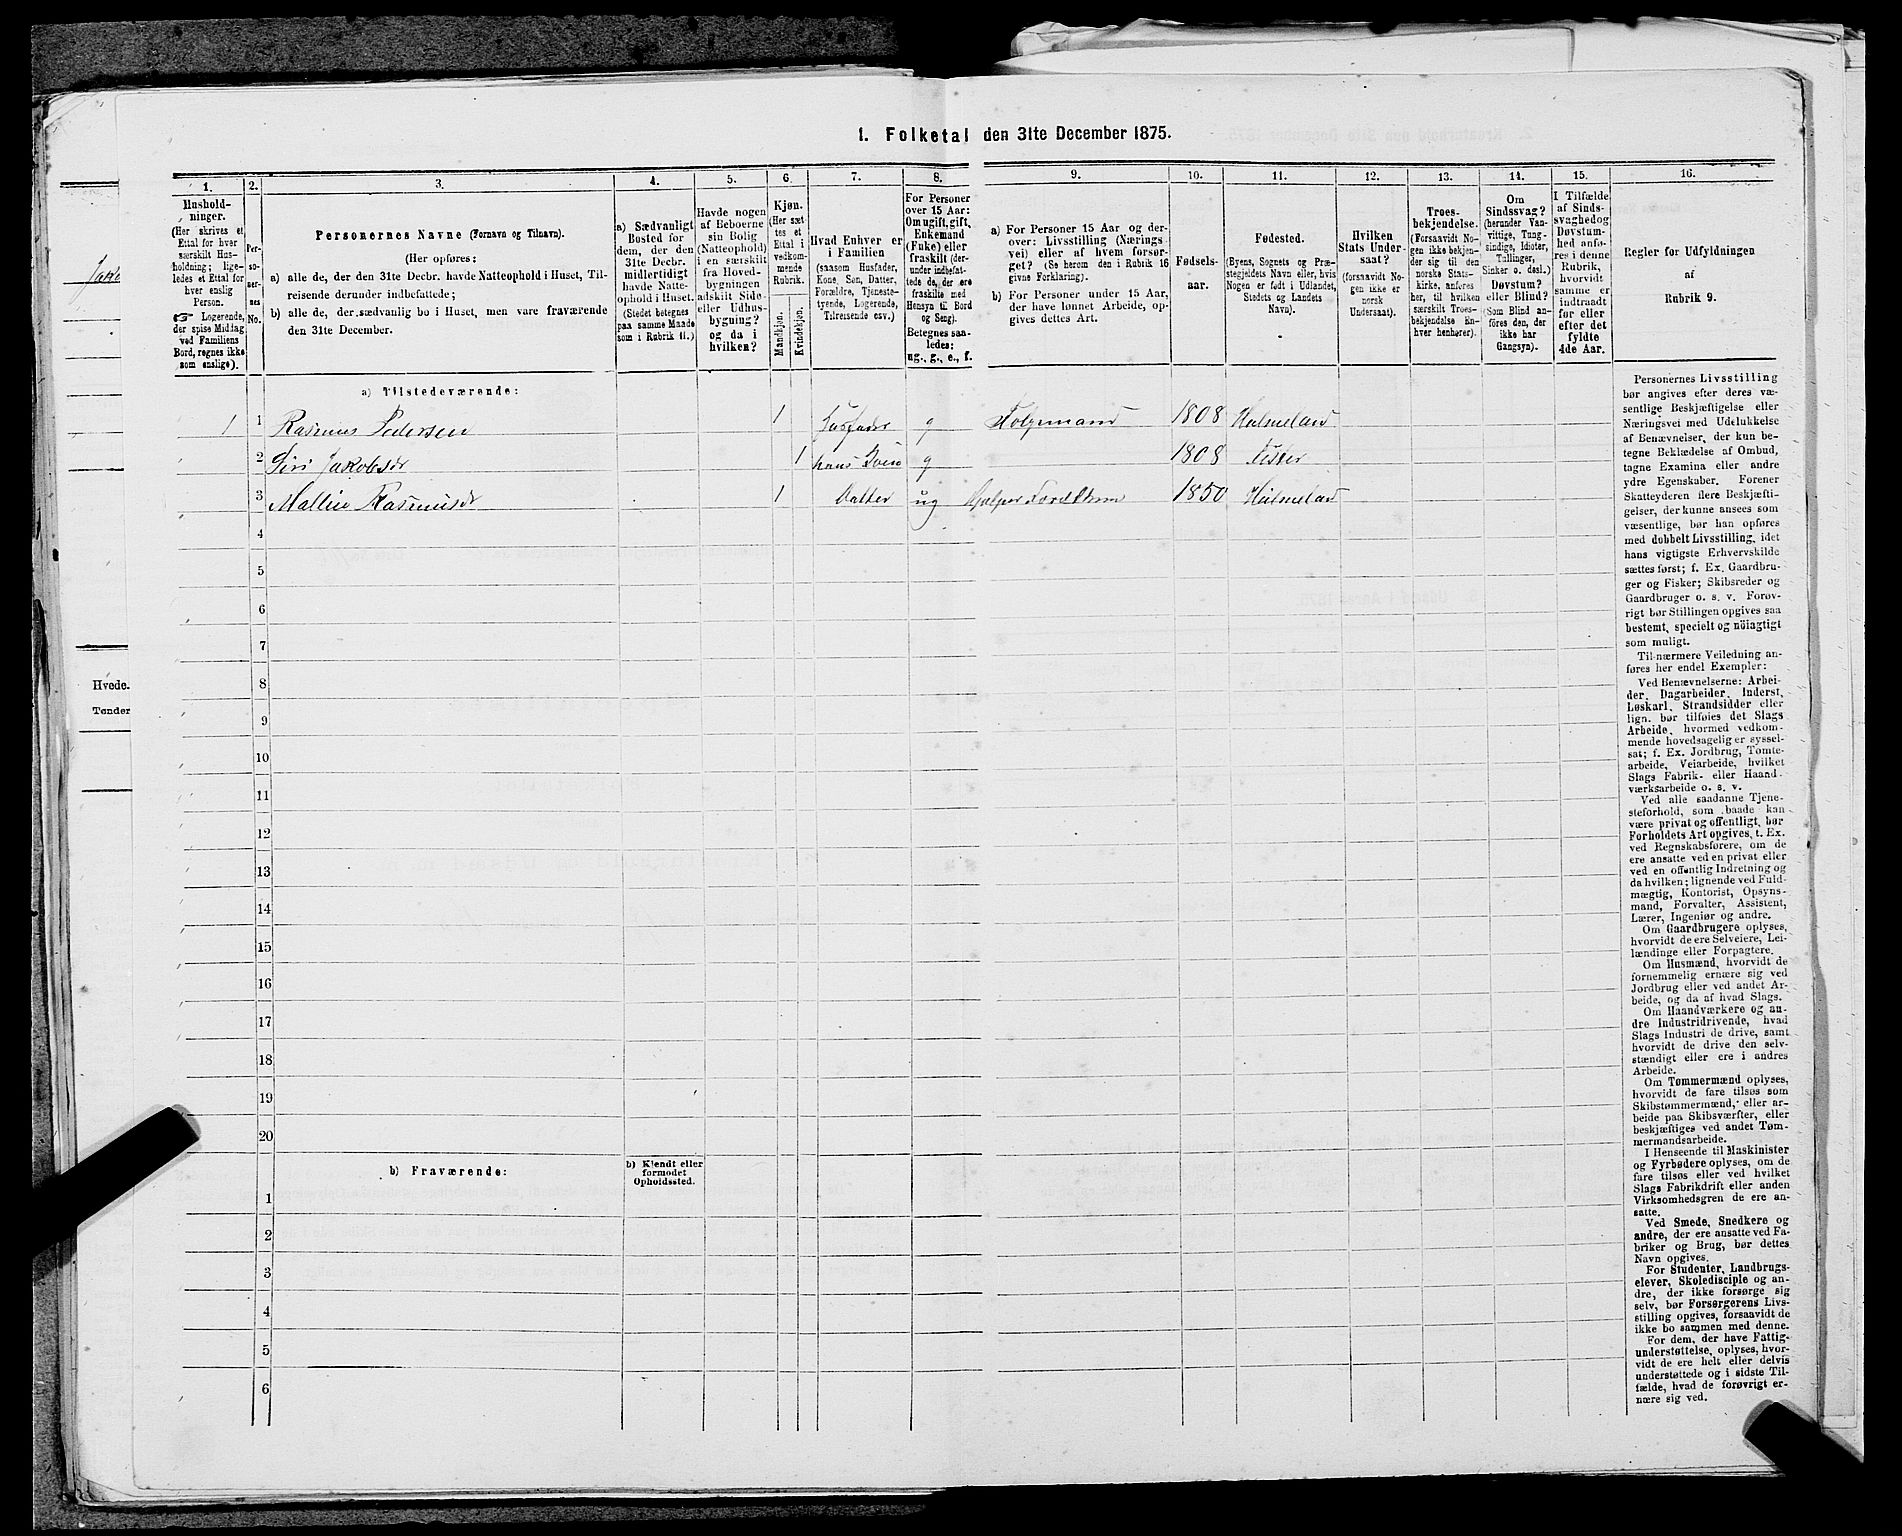 1. Folketal den 31te December 1875.
1. 2. 3. 4. 5. 6. 7. 8. 9. 10. 11. 12. 13. 14. 15. 16.
Hushold-
ninger.
(Her skrives et
Ettal for hver
særskilt Hus-
holdning; lige-
ledes et Ettal for
hver enslig
Person.
☞ Logerende,
der spise Middag
ved Familiens
Bord, regnes ikke
som enslige).
Per-
so-
ner-
nes
No.
Personernes Navne (Fornavn og Tilnavn).
(Her opføres:
a) alle de, der den 31te Decbr. havde Natteophold i Huset, Til-
reisende derunder indbefattede;
b) alle de, der sædvanlig bo i Huset, men vare fraværende
den 31te December.
a) Sædvanligt
Bosted for
dem, der den
31te Decbr.
midlertidigt
havde Natte-
ophold i Huset.
(Stedet betegnes
paa samme Maade
som i Rubrik 11.)
Havde nogen
af Beboerne
sin Bolig
(Natteophold)
i en særskilt
fra Hoved-
bygningen
adskilt Side-
eller Udhus-
bygning?
og da i
hvilken?
Kjøn.
(Her sæt-
tes et
Ettal i
vedkom-
mende
Rubrik.
Mandkjøn.
Kvindekjøn.
Hvad Enhver er
i Familien
(saasom Husfader,
Kone, Søn, Datter,
Forældre, Tjeneste-
tyende, Logerende,
Tilreisende osv.)
For Personer
over 15 Aar:
Om ugift, gift,
Enkemand
(Enke) eller
fraskilt (der-
under indbefat-
tede de, der ere
fraskilte med
Hensyn til Bord
og Seng).
Betegnes saa-
ledes:
ug., g., e., f.
a) For Personer 15 Aar og der-
over: Livsstilling (Nærings-
vei) eller af hvem forsør-
get? (Se herom den i Rubrik 16
givne Forklaring).
b) For Personer under 15 Aar,
der have lønnet Arbeide, op-
gives dettes Art.
Fødsels-
aar.
Fødested.
(Byens, Sognets og Præ-
stegjeldets Navn eller, hvis
Nogen er født i Udlandet,
Stedets og Landets
Navn).
Hvilken
Stats Under-
saat?
(forsaavidt No-
gen ikke er
norsk
Undersaat).
Troes-
bekjendelse.
(Forsaavidt No-
gen ikke bekjen-
der sig til den
norske Stats-
kirke, anføres
her, til hvilken
særskilt Troes-
bekjendelse En-
hver henhører).
Om
Sindssvag?
(herunder Van-
vittige, Tung-
sindige, Idioter,
Tullinger,
Sinker o. desl.)
Døvstum?
eller Blind?
(Som Blind an-
føres den, der
ikke har
Gangsyn).
I Tilfælde
af Sinds-
svaghed og
Døvstum-
hed anfø-
res i denne
Rubrik,
hvorvidt
samme er
indtraadt
før eller
efter det
fyldte
4de Aar.
Regler for Udfyldningen
af
Rubrik 9.
a) Tilstedeværende:
1 1 Rasmus Pedersen 1 Husfader g Folgemand 1808 Hålmeland
2 Siri Jakobsdr 1 hans Kone g 1808 Fister
3 Malline Rasmusdr 1 Datter ug Hjelper Foreldrene 1850 Hålmeland
4
5
6
7
8
9
10
11
12
13
14
15
16
17
18
19
20
b) Fraværende:
b) Kjendt eller
formodet
Opholdssted.
1
2
3
4
5
6
Personernes Livsstilling
bør angives efter deres væ-
sentlige Beskjæftigelse eller
Næringsvei med Udelukkelse
af Benævnelser, der kun be-
tegne Beklædelse af Ombud,
tagne Examina eller andre
ydre Egenskaber. Forener
Skatteyderen flere Beskjæfti-
gelser, der kunne ansees som
væsentlige, bør han opføres
med dobbelt Livsstilling, idet
hans vigtigste Erhvervskilde
sættes først; f. Ex. Gaardbru-
ger og Fisker; Skibsreder og
Gaardbruger o. s. v. Forøv-
rigt bør Stillingen opgives saa
bestemt, specielt og nöiagtigt
som muligt.
Til nærmere Veiledning an-
føres her endel Exempler:
Ved Benævnelserne: Arbei-
der, Dagarbeider, Inderst,
Løskarl, Strandsidder eller
lign. bør tilføies det Slags
Arbeide, hvormed vedkom-
mende hovedsagelig er syssel-
sat; f. Ex. Jordbrug, Tomte-
arbeide, Veiarbeide, hvilket
Slags Fabrik- eller Haand-
værksarbeide o. s. v.
Ved alle saadanne Tjene-
steforhold, som baade kan
være privat og offentligt, bør
Forholdets Art opgives, t. Ex.
ved Regnskabsførere, om de
ere ansatte ved en privat eller
ved en offentlig Indretning og
da hvilken; lignende ved Fuld-
mægtig, Kontorist, Opsyns-
mand, Forvalter, Assistent,
Lærer, Ingeniør og andre.
Om Gaardbrugere oplyses,
hvorvidt de ere Selveiere, Lei-
lændinge eller Forpagtere.
Om Husmænd, hvorvidt de
fornemmelig ernære sig ved
Jordbrug eller ved andet Ar-
beide, og da af hvad Slags.
Om Haandværkere og an-
dre Industridrivende, hvad
Slags Industri de drive, samt
hvorvidt de drive den selv-
stændigt eller ere i andres
Arbeide.
Om Tømmermænd oplyses,
hvorvidt de fare tilsøs som
Skibstømmermænd, eller ar-
beide paa Skibsværfter, eller
beskjæftiges ved andet Tøm-
mermandsarbeide.
I Henseende til Maskinister
og Fyrbødere oplyses, om de
fare tilsøs eller ved hvilket
Slags Fabrikdrift eller anden
Virksomhedsgren de ere an-
satte.
Ved Smede, Snedkere og
andre, der ere ansatte ved Fa-
briker og Brug, bør dettes
Navn opgives.
For Studenter, Landbrugs-
elever, Skoledisciple og an-
dre, der ikke forsørge sig
selv, bør Forsørgerens Livs-
stilling opgives, forsaavidt de
ikke bo sammen med denne.
For dem, der have Fattig-
understøttelse, oplyses, hvor-
vidt de ere helt eller delvis
understøttede og i sidste Til-
fælde, hvad de forøvrigt er-
nære sig ved.
Hvede.
Tønder